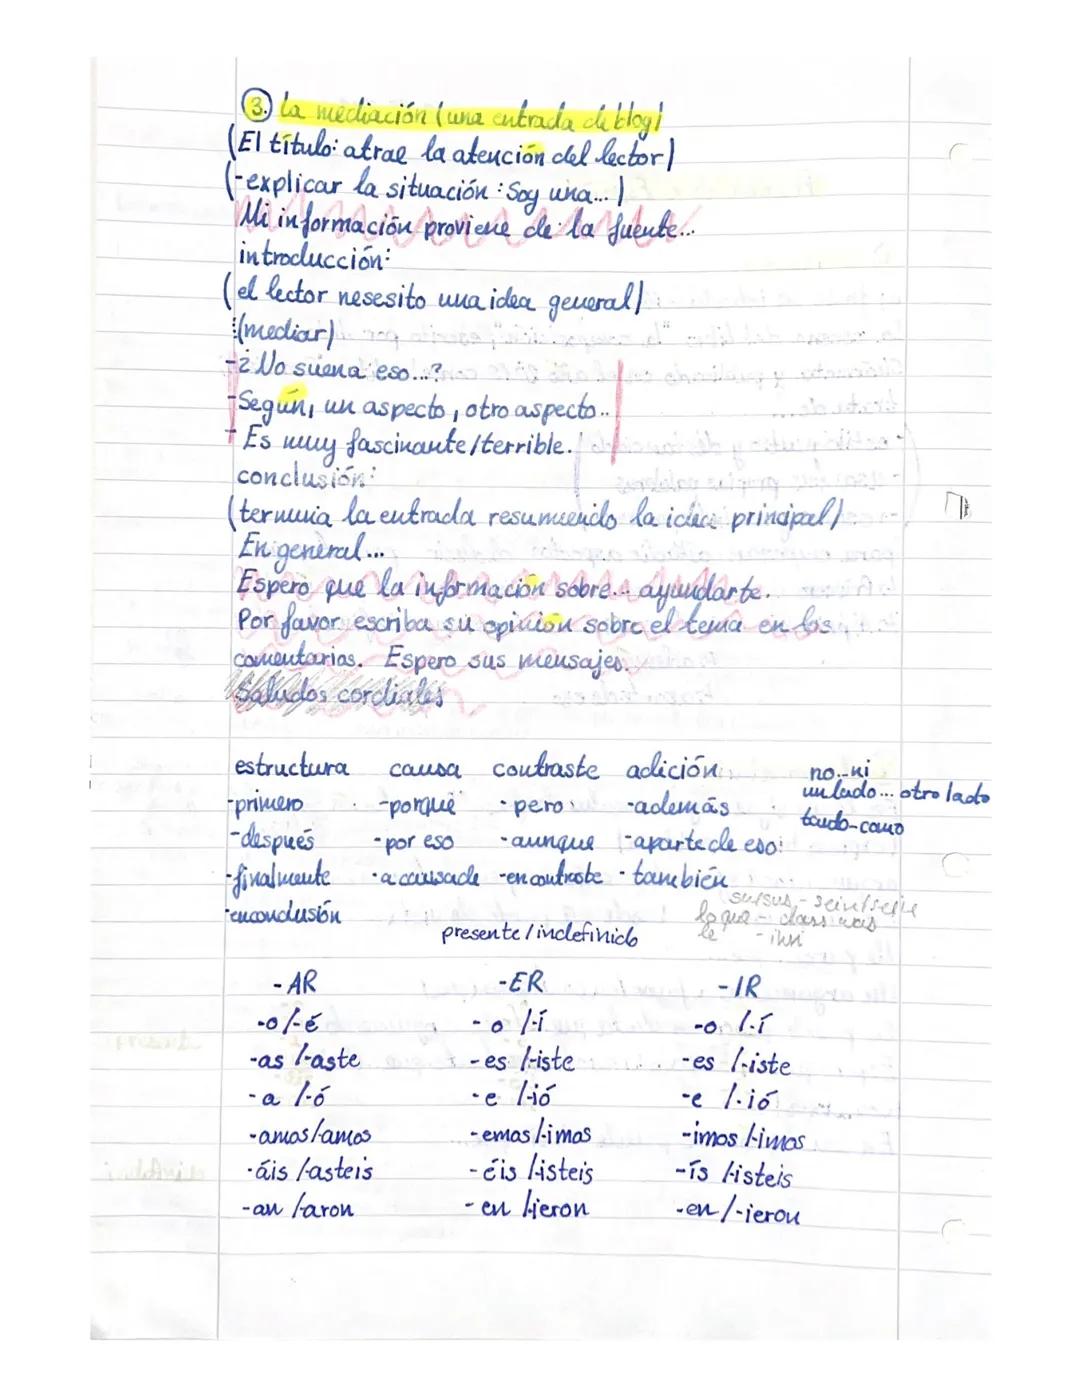 3. La mediación (una entrada de blog)
(El título: atrae la atención del lector)
(-explicar la situación: Soy una...)
Mi información proviene de la fuente...
introducción:
(el lector nesesito una idea general)
(mediar)
-¿No suena eso...?
-Según, un aspecto, otro aspecto..
-Es muy fascinante/terrible.
conclusión:
(termina la entrada resumiendo la idea principal)
En general...
Espero que la información sobre... ayundarte.
Por favor escriba su opinión sobre el tema en los
comentarios. Espero sus mensajes.
Saludos cordiales
estructura causa contraste adición no...ni
-primero -porqué -pero -además un lado... otro lado
tando-como
-después -por eso -aunque -aparte de eso:
-finalmente -a causa de -en contraste -también
-en conclusión su/sus - sein/seine
lo que - dass was
le - ihn
presente/indefinido
-AR -ER -IR
-o/-é -o/-í -o/-í
-as/-aste -es/-iste -es/-iste
-a/-ó -e/-ió -e/-ió
-amos/-amos -emos/-imos -imos/-imos
-áis/-asteis -éis/-isteis -ís/-isteis
-an/-aron -en/-ieron -en/-ieron